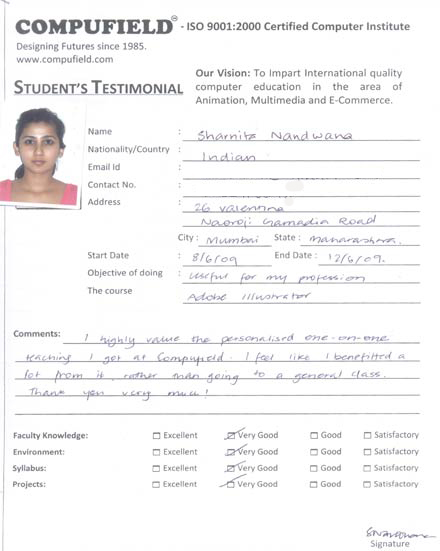 COMPUFIELD® - ISO 9001:2000 Certified Computer Institute
Designing Futures since 1985.
www.compufield.com
Our Vision: To Impart International quality
computer education in the area of
Animation, Multimedia and E-Commerce.
STUDENT'S TESTIMONIAL
Name : Sharnita Nandwana
Nationality/Country : Indian
Email Id :
Contact No. :
Address : 26 Valentina
Naoroji Gamadia Road
City : Mumbai State : Maharashtra.
Start Date : 8/6/09 End Date : 12/6/09.
Objective of doing : Useful for my profession
The course Adobe Illustrator
Comments: I highly value the personalised one-on-one
teaching I got at Compufield. I feel like I benefitted a
lot from it, rather than going to a general class.
Thank you very much!
Faculty Knowledge: Excellent Very Good Good Satisfactory
Environment: Excellent Very Good Good Satisfactory
Syllabus: Excellent Very Good Good Satisfactory
Projects: Excellent Very Good Good Satisfactory
Signature